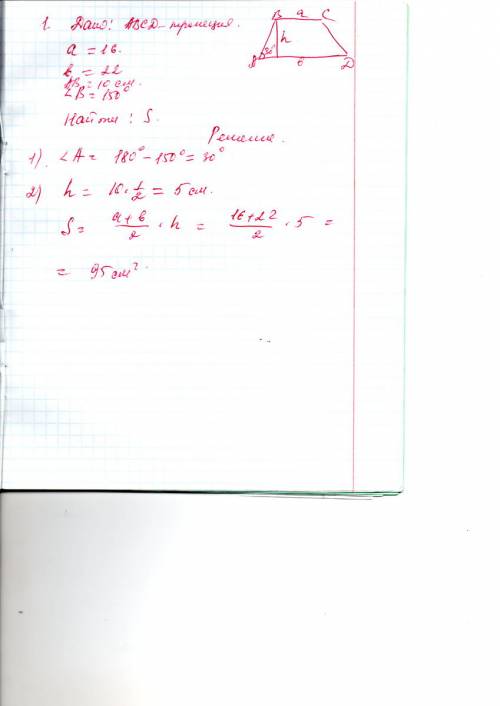 1. Дано: ABCD - трапеция.
a = 16.
b = 22
AB = 10 см.
∠B = 150°
Найти: S.
Решение.
1) ∠A = 180° - 150° = 30°
2) h = 10 · 1/2 = 5 см.
S = a+b/2 · h = 16+22/2 · 5 =
= 95 см².
B a C
h
A 30° b D